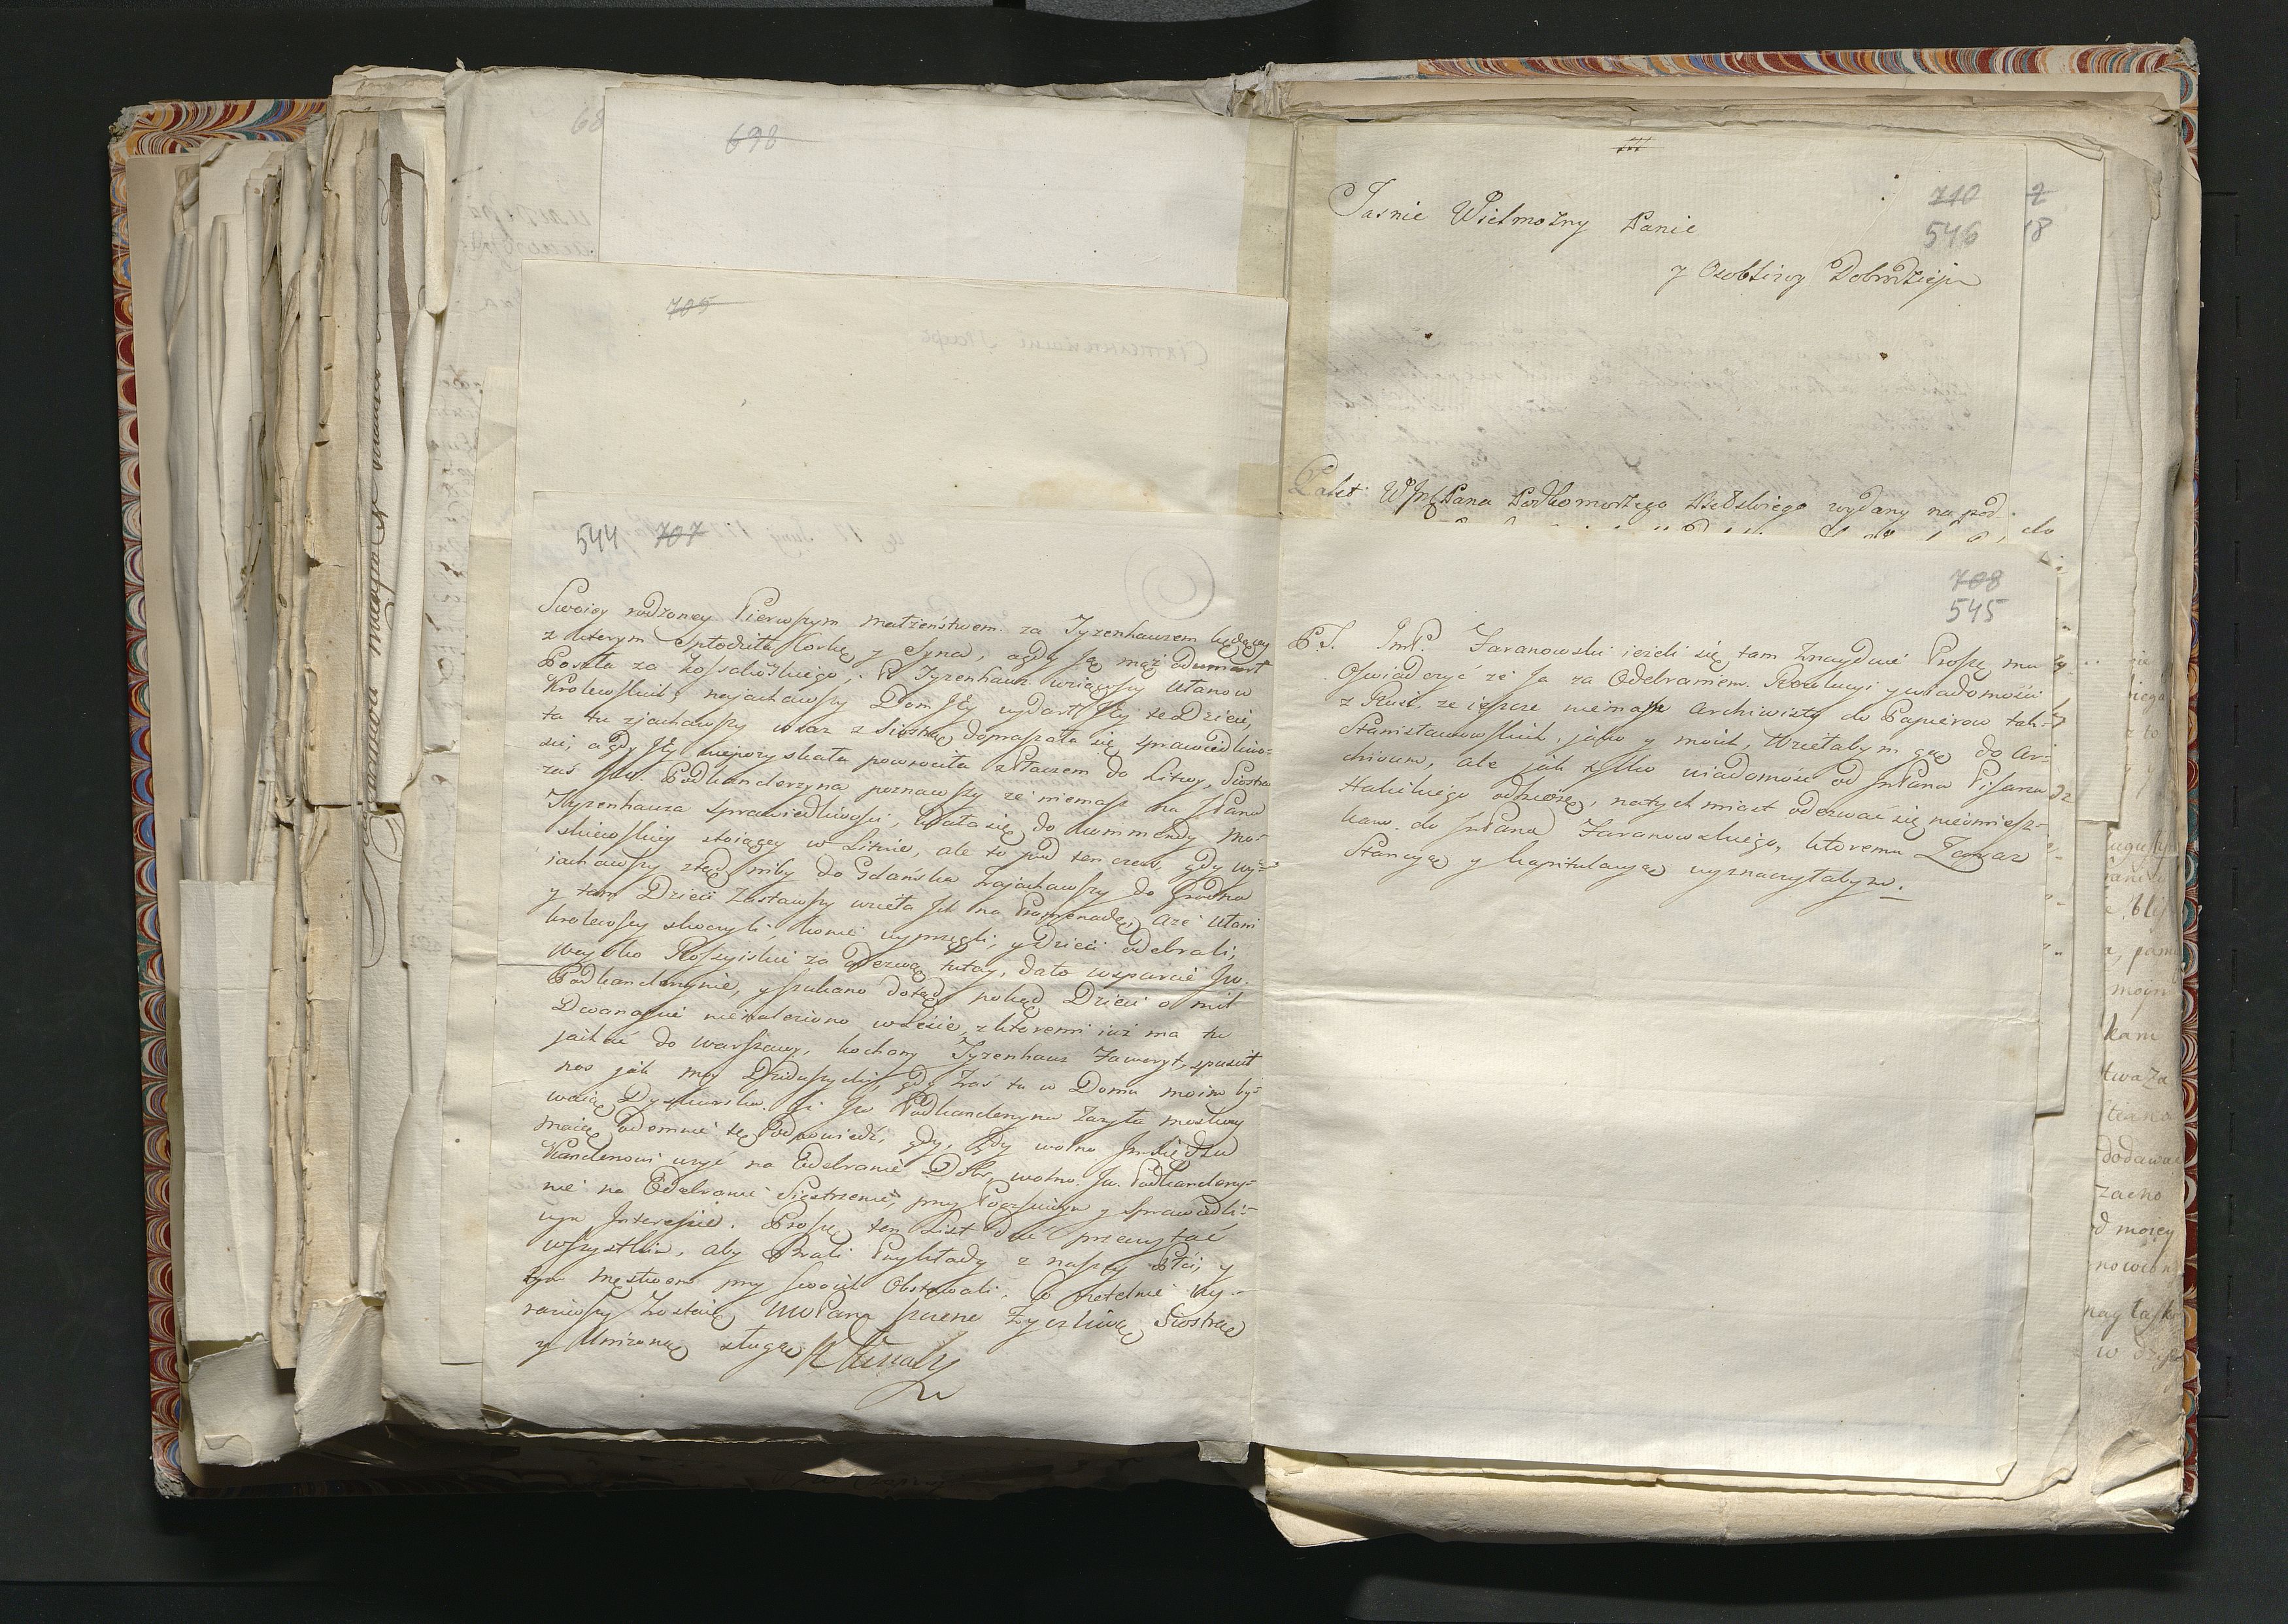 698
705
544 707
Swoiey rodzoney Pierwszym małżeństwem za Tyzenhauzem będącey
z kterym Spłodziła Corkę y Syna, agdy Ją mąż odumarł
Poszła za Kossakowskiego; P Tyzenhauz wziąwszy Ułanow
Krolewskich, najachawszy Dom Jey wydarł Jey te Dzieci,
ta tu zjachawszy wraz z Siostrą dopraszała się sprawiedliwo=
ści, a gdy Jey niepozyskała powrociła z Płaczem do Litwy, Siostra
zaś Jw. Podkanclerzyna poznawszy że niemasz na JPana
Tyzenhauza sprawiedliwości, udała się do kommendy Mo=
skiewskiey stoiącey w Litwie, ale to pod ten czas gdy wy=
jachawszy ztąd niby do Gdańska Zajachawszy do Grodna
y tam Dzieci Zastawszy wzieła Jch na Promenadę, aże Ułani
krolewscy skoczyli, konie wyprzęgli, y Dzieci odebrali,
Woysko Rossyiskie za odezwą tutay, dało wsparcie Jw.
Podkanclerzynie, y szukano dotąd pokąd Dzieci o mil
Dwanaście nieznaleziono w Lesie, z ktoremi już ma tu
jechać do Warszawy, kochany Tyzenhauz Zawarył, spuścił
nos jak moy Dziduszycki, gdy Zaś tu w Domu moim by=
waią Dyskursa. Że Jw Podkanclerzyna Zażyła Moskwy
maią odemnie tę Odpowiedź, gdy, Gdy wolno Jm Xiedzu
Kanclerzowi użyć na Odebranie Dobr, wolno Jw. Podkanclerzy=
nie na Odebranie Siestrzeńcow, przy Poczciwym y Sprawiedli=
wym Interesie. Proszę ten List dać przeczytać
wszystkim, aby Brali Przykłady z naszey Płci, y
tym męstwem przy swoich Obstawali, Co rzetelnie Wy=
raziwszy Zostaię WMPana szczerze Życzliwą Siostrą
y Uniżoną sługą
710
546
2
18
Jasnie Wielmożny Panie
y Osobliwy Dobrodzieju
WJmPana Podkomorzego Bielskiego wydany na pod
do
708
545
P.S. JmP. Zaranowski ieżeli się tam Znayduie Proszę mu
Oświadczyć że Ja za Odebraniem Rezolucyi y wiadomości
z Rusi, że ieszcze niemasz Archiwisty do Papierow tak=
Stanisławowskich, jako y moich, Wziełabym gą do Ar=
chiwum, ale jak tylko wiadomość od JmPana Pisarza
Halickiego odniosę, natychmiast odezwać się nieomiesz=
kam do JmPana Zaranowskiego, ktoremu Zaraz
Stancyą y kapitulacyą wyznaczyłabym.